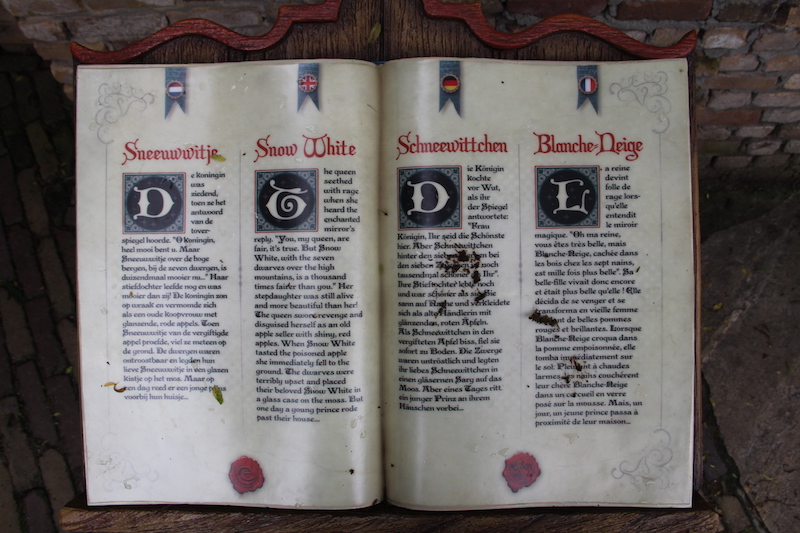 Sneeuwwitje
De koningin
was
ziedend,
toen ze het
antwoord
van de
tover-
spiegel hoorde. "O koningin,
heel mooi bent u. Maar
Sneeuwwitje over de hoge
bergen, bij de zeven dwergen, is
duizendmaal mooier nu..." Haar
stiefdochter leefde nog en was
mooier dan zij! De koningin zon
op wraak en vermomde zich
als een oude koopvrouw met
glanzende, rode appels. Toen
Sneeuwwitje van de vergiftigde
appel proefde, viel ze meteen op
de grond. De dwergen waren
ontroostbaar en legden hun
lieve Sneeuwwitje in een glazen
kistje op het mos. Maar op
een dag reed er een jonge prins
voorbij hun huisje...
Snow White
The queen
seethed
with rage
when she
heard the
enchanted
mirror's
reply. "You, my queen, are
fair, it's true. But Snow
White, with the seven
dwarves over the high
mountains, is a thousand
times fairer than you." Her
stepdaughter was still alive
and more beautiful than her!
The queen swore revenge and
disguised herself as an old
apple seller with shining, red
apples. When Snow White
tasted the poisoned apple
she immediately fell to the
ground. The dwarves were
terribly upset and placed
their beloved Snow White in
a glass case on the moss. But
one day a young prince rode
past their house...
Schneewittchen
Die Königin
kochte
vor Wut,
als ihr
der Spiegel
antwortete:
"Frau
Königin, Ihr seid die Schönste
hier. Aber Schneewittchen
hinter den bei
den sieben noch
tausendmal als Ihr".
Ihre Stieftochter lebte noch
und war schöner als sie! Sie
sann auf Rache und verkleidete
sich als alte Händlerin mit
glänzenden, roten Äpfeln.
Als Schneewittchen in den
vergifteten Apfel biss, fiel sie
sofort zu Boden. Die Zwerge
waren untröstlich und legten
ihr liebes Schneewittchen in
einen gläsernen Sarg auf das
Moos. Aber eines Tages ritt
ein junger Prinz an ihrem
Häuschen vorbei...
Blanche-Neige
La reine
devint
folle de
rage lors-
qu'elle
entendit
le miroir
magique. "Oh ma reine,
vous êtes très belle, mais
Blanche-Neige, cachée dans
les bois chez les sept nains,
est mille fois plus belle". Sa
belle-fille vivait donc encore
et était plus belle qu'elle! Elle
décida de se venger et se
transforma en vieille femme
de belles pommes
rouges et brillantes. Lorsque
Blanche-Neige croqua dans
la pomme empoisonnée, elle
tomba immédiatement sur
le sol. Pleurant à chaudes
larmes, les nains couchèrent
leur chère Blanche-Neige
dans un cercueil en verre
posé sur la mousse. Mais, un
jour, un jeune prince passa à
proximité de leur maison...